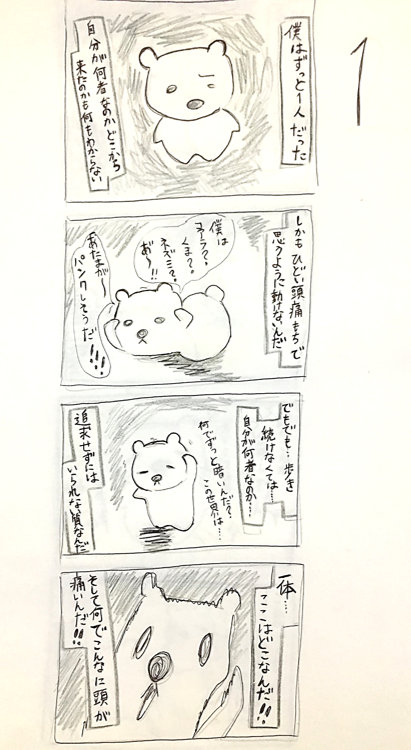 1
僕はずっと1人だった
自分が何者なのかどこから
来たのかも何もわからない
しかもひどい頭痛もちで
思うように動けないんだ
僕は
コアラ?
くま?
ネズミ?
あ"〜!!
あたまが〜
パンクしそうだ!!!
でもでも…歩き
続けなくては…
自分が何者なのか…
何でずっと暗いんだ?
この世界は…
追求せずには
いられない質なんだ
一体…
ここはどこなんだ!!
そして何でこんなに頭が
痛いんだ!!